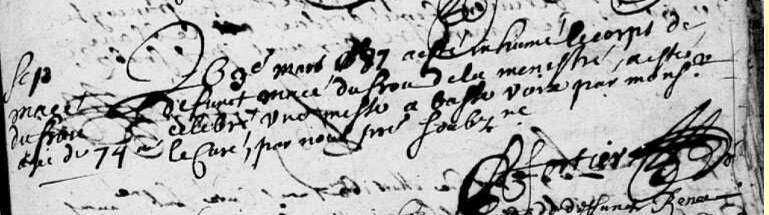 Sep
macé
dufrou
agé de 74 a
Le 3e mars 1687 a esté inhumé le corps de
defunct macé dufrou de la menestré, a esté
celebré une messe a basse voix par monsr
le Curé, par nous pre soubz ne
fortier